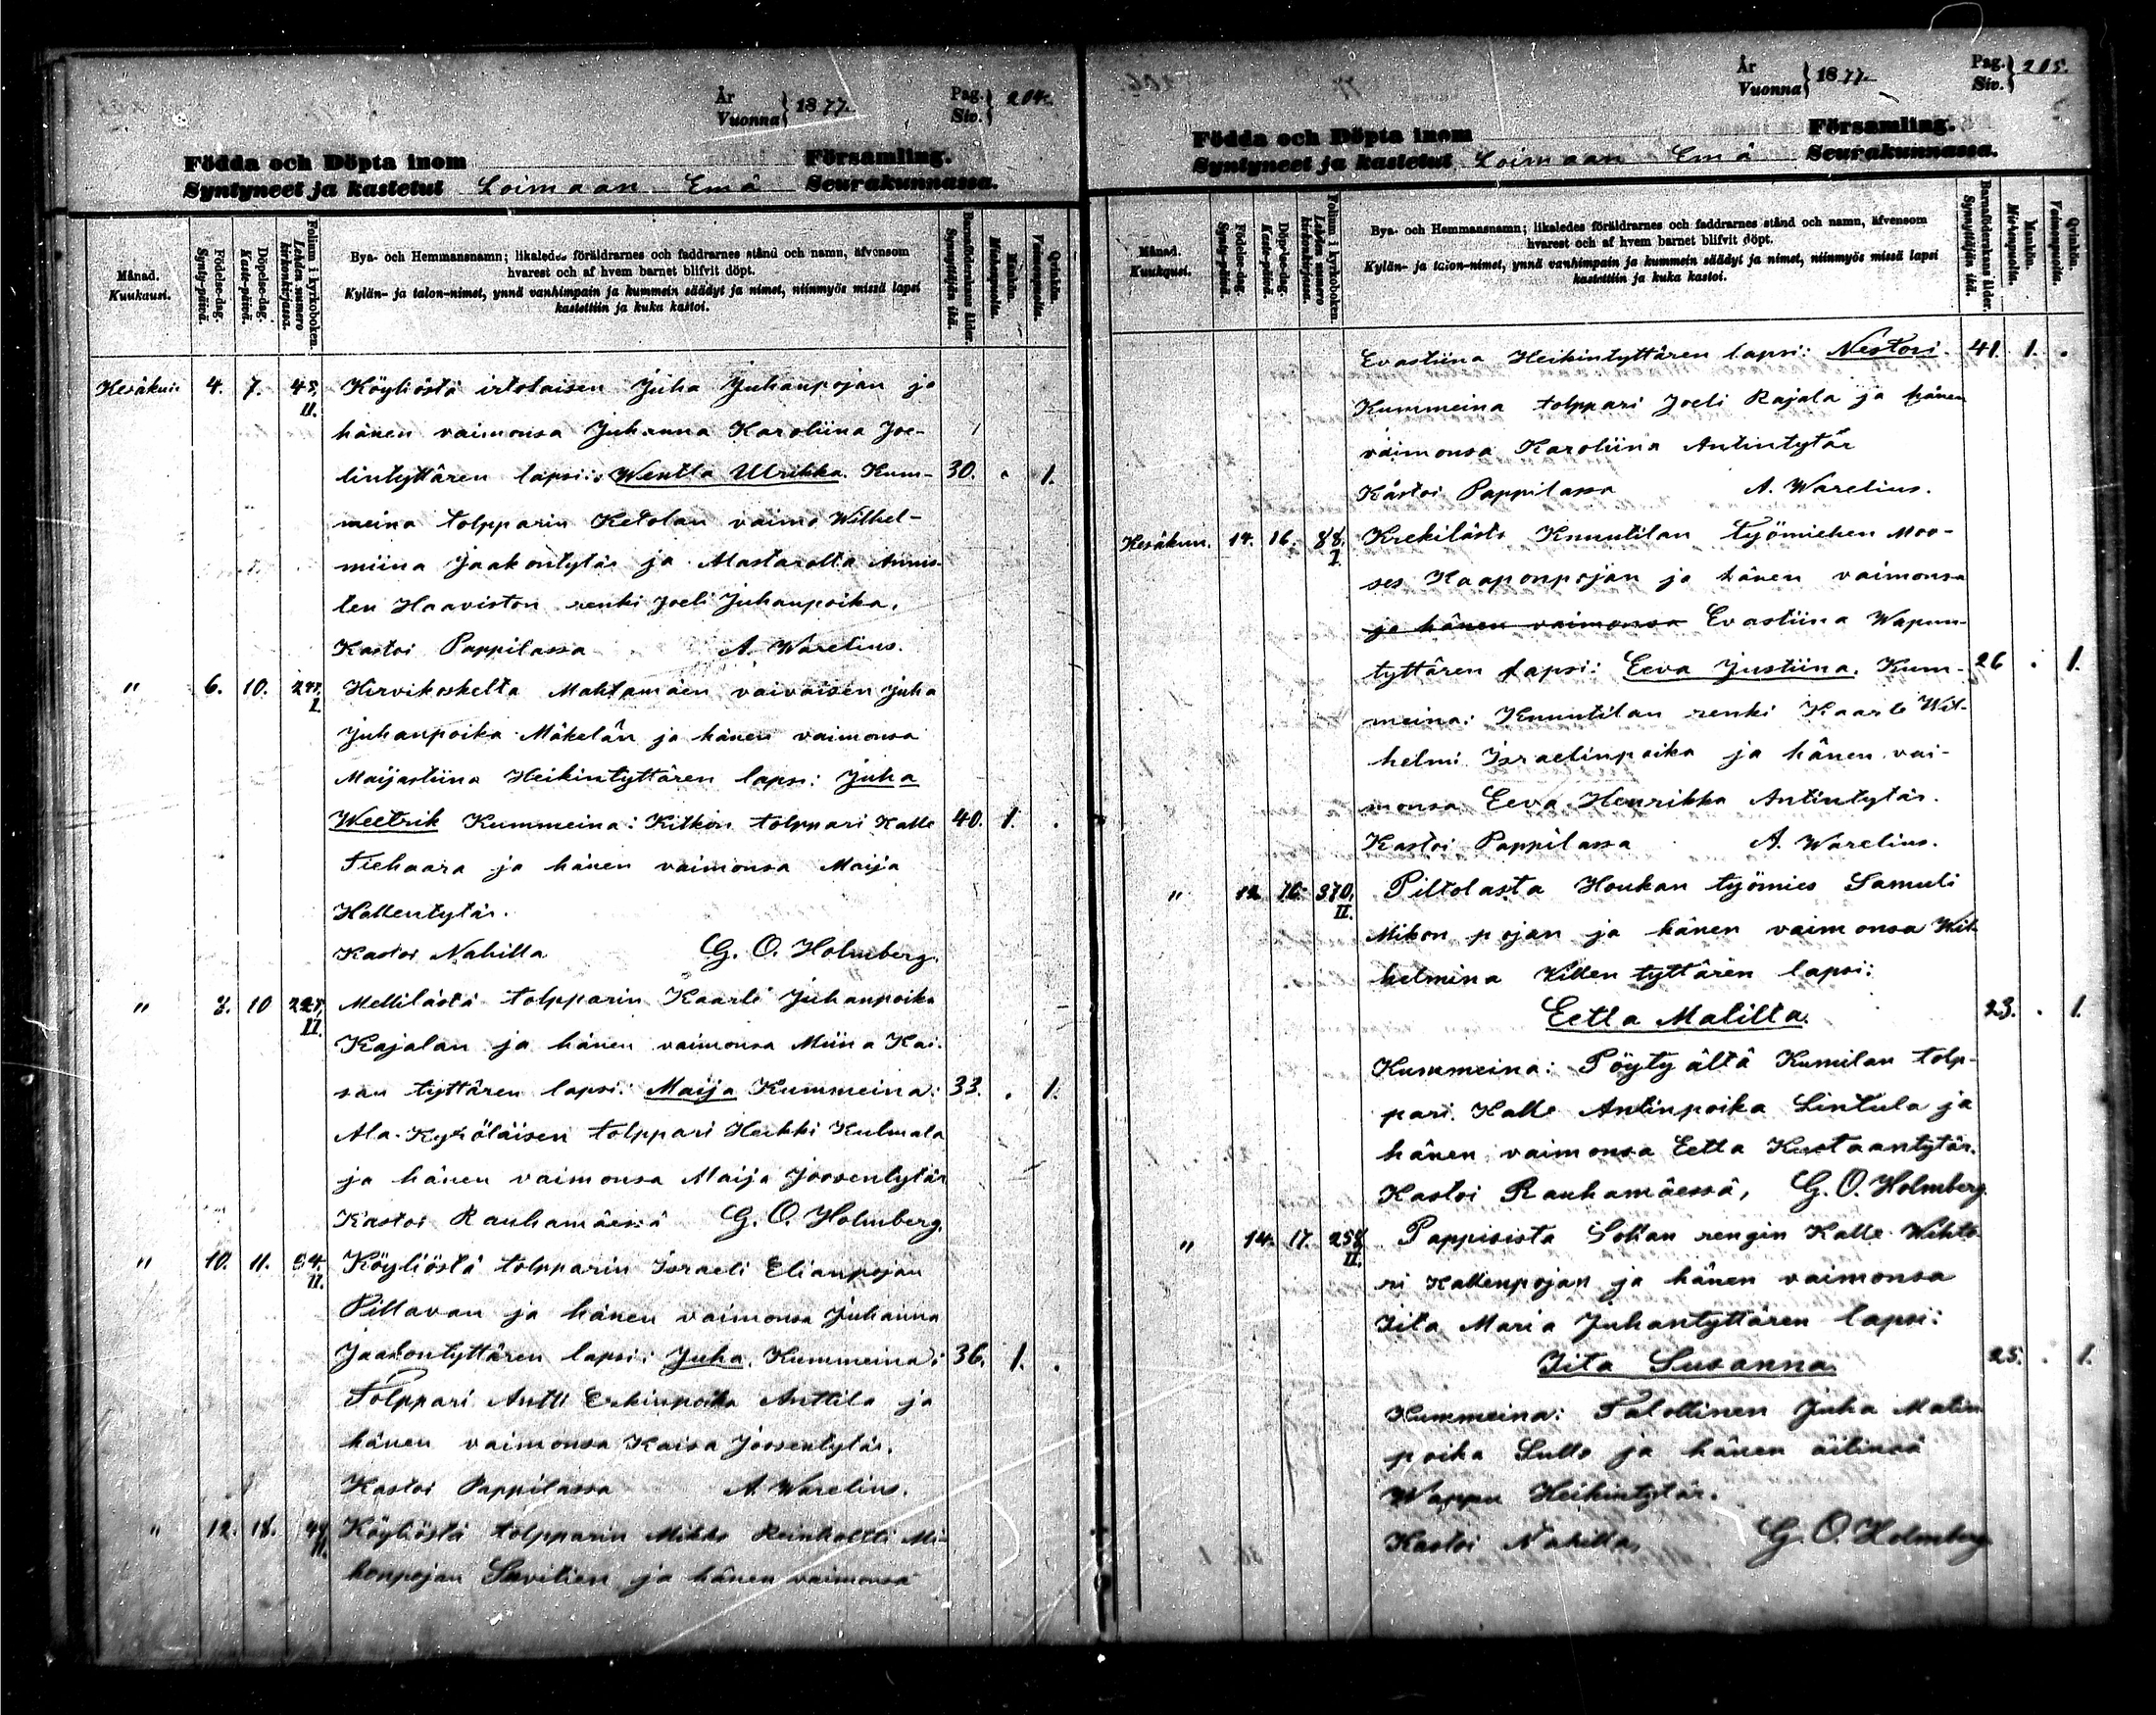 År
Vuonna } 1877.
Pag.
Siv. } 204.
Födda och Döpta inom Församling.
Syntyneet ja kastetut Loimaan Emä Seurakunnassa.
Månad.
Kuukausi.
Födelse-dag.
Synty-päivä.
Döpelse-dag.
Kaste-päivä.
Folium i kyrkoboken.
Lehden numero kirkonkirjassa.
Bya- och Hemmansnamn; likaledes föräldrarnes och faddrarnes stånd och namn, äfvensom
hvarest och af hvem barnet blifvit döpt.
Kylän- ja talon-nimet, ynnä vanhimpain ja kummein säädyt ja nimet, niinmyös missä lapsi
kastettiin ja kuka kastoi.
Barnaföderskans ålder.
Synnyttäjän ikä.
Mankön.
Miehenpuolia.
Qvinkön.
Vaimonpuolia.
Kesäkuu 4. 7. 45. II. Köyliöstä irtolaisen Juha Juhanpojan ja
hänen vaimonsa Juhanna Karoliina Joe-
lintyttären lapsi: Wentla Ulrikka. Kum- 30. . 1.
meina tolpparin Ketolan vaimo Wilhel-
miina Jaakontytär ja Mastarolta Annis-
ten Haaviston renki Joeli Juhanpoika.
Kastoi Pappilassa A. Warelius.
" 6. 10. I. Hirvikoskelta Mahtamäen vaivaisen Juha
Juhanpoika Mäkelän ja hänen vaimonsa
Maijastiina Heikintyttären lapsi: Juha
Weetrik Kummeina: Kitkon tolppari Kalle 40. 1. .
Tiehaara ja hänen vaimonsa Maija
Kallentytär.
Kastoi Nahilla G. O. Holmberg.
" 8. 10 II. Mellilästä tolpparin Kaarle Juhanpoika
Kajalan ja hänen vaimonsa Miina Kai-
san tyttären lapsi: Maija Kummeina: 33. . 1.
Ala-Kyröläisen tolppari Heikki Kulmala
ja hänen vaimonsa Maija Joosentytär
Kastoi Rauhamäessä G. O. Holmberg.
" 10. 11. II. Köyliöstä tolpparin Israeli Elianpojan
Pillavan ja hänen vaimonsa Juhanna
Jaakontyttären lapsi: Juha. Kummeina: 36. 1. .
Tolppari Antti Erkinpoika Anttila ja
hänen vaimonsa Kaisa Joosentytär.
Kastoi Pappilassa A. Warelius.
" 12. 18. II. Köyliöstä tolpparin Mikko Reinholtti Mi-
konpojan Savitien ja hänen vaimonsa
År
Vuonna } 1877.
Pag.
Siv. } 205.
Födda och Döpta inom Församling.
Syntyneet ja kastetut Loimaan Emä Seurakunnassa.
Månad.
Kuukausi.
Födelse-dag.
Synty-päivä.
Döpelse-dag.
Kaste-päivä.
Folium i kyrkoboken.
Lehden numero kirkonkirjassa.
Bya- och Hemmansnamn; likaledes föräldrarnes och faddrarnes stånd och namn, äfvensom
hvarest och af hvem barnet blifvit döpt.
Kylän- ja talon-nimet, ynnä vanhimpain ja kummein säädyt ja nimet, niinmyös missä lapsi
kastettiin ja kuka kastoi.
Barnaföderskans ålder.
Synnyttäjän ikä.
Mankön.
Miehenpuolia.
Qvinkön.
Vaimonpuolia.
Evastiina Heikintyttären lapsi: Nestori. 41. 1. .
Kummeina tolppari Joeli Rajala ja hänen
vaimonsa Karoliina Antintytär
Kastoi Pappilassa A. Warelius.
Kesäkuu. 14. 16. 88. I. Krekilästä Knuutilan työmiehen Moo-
ses Kaaponpojan ja hänen vaimonsa
ja hänen vaimonsa Evastiina Wapun-
tyttären lapsi: Eeva Justiina. Kum- 26 . 1.
meina: Knuutilan renki Kaarle Wil-
helmi Israelinpoika ja hänen vai-
monsa Eeva Henrikka Antintytär.
Kastoi Pappilassa A. Warelius.
" 12 16. 370. II. Piltolasta Houkan työmies Samuli
Mikon pojan ja hänen vaimonsa Wil-
helmina Villen tyttären lapsi:
Eetla Matilta. 23. . 1.
Kummeina: Pöytyältä Kumilan tolp-
pari Kalle Antinpoika Lintula ja
hänen vaimonsa Eetla Kustaantytär.
Kastoi Rauhamäessä, G. O. Holmberg.
" 14. 17. 258 II. Pappisista Sollan rengin Kalle Wihto
ri Kallenpojan ja hänen vaimonsa
Iita Maria Juhantyttären lapsi:
Iita Susanna. 25. . 1.
Kummeina: Talollinen Juha Matin
poika Sullo ja hänen äitinsä
Wappu Heikintytär.
Kastoi Nahilla, G. O. Holmberg